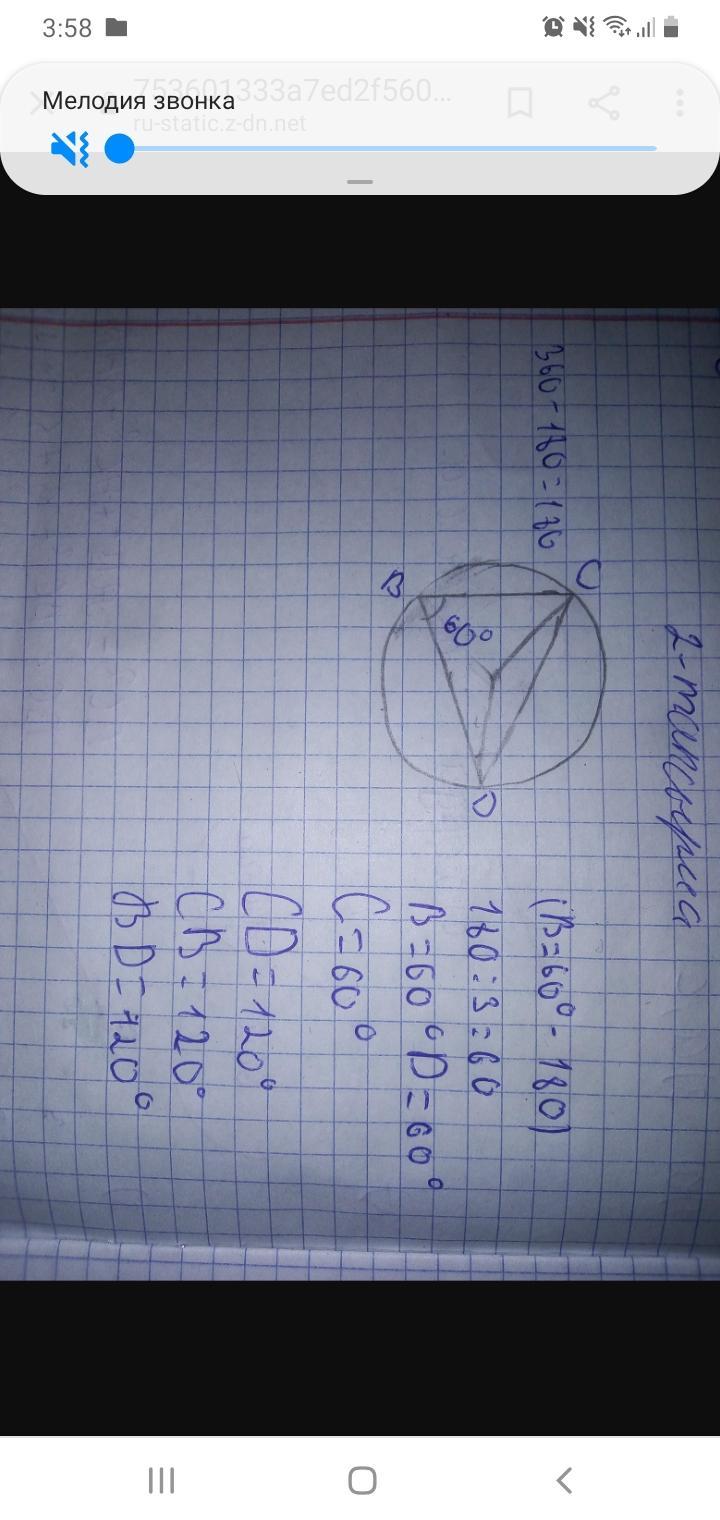 3:58
753601333a7ed2f560...
Мелодия звонка
ru-static.z-dn.net
2-тапсырма
360-180=180
C
B
60°
D
(B=60°-180)
180:3=60
B=60° D=60°
C=60°
CD=120°
CB=120°
BD=120°